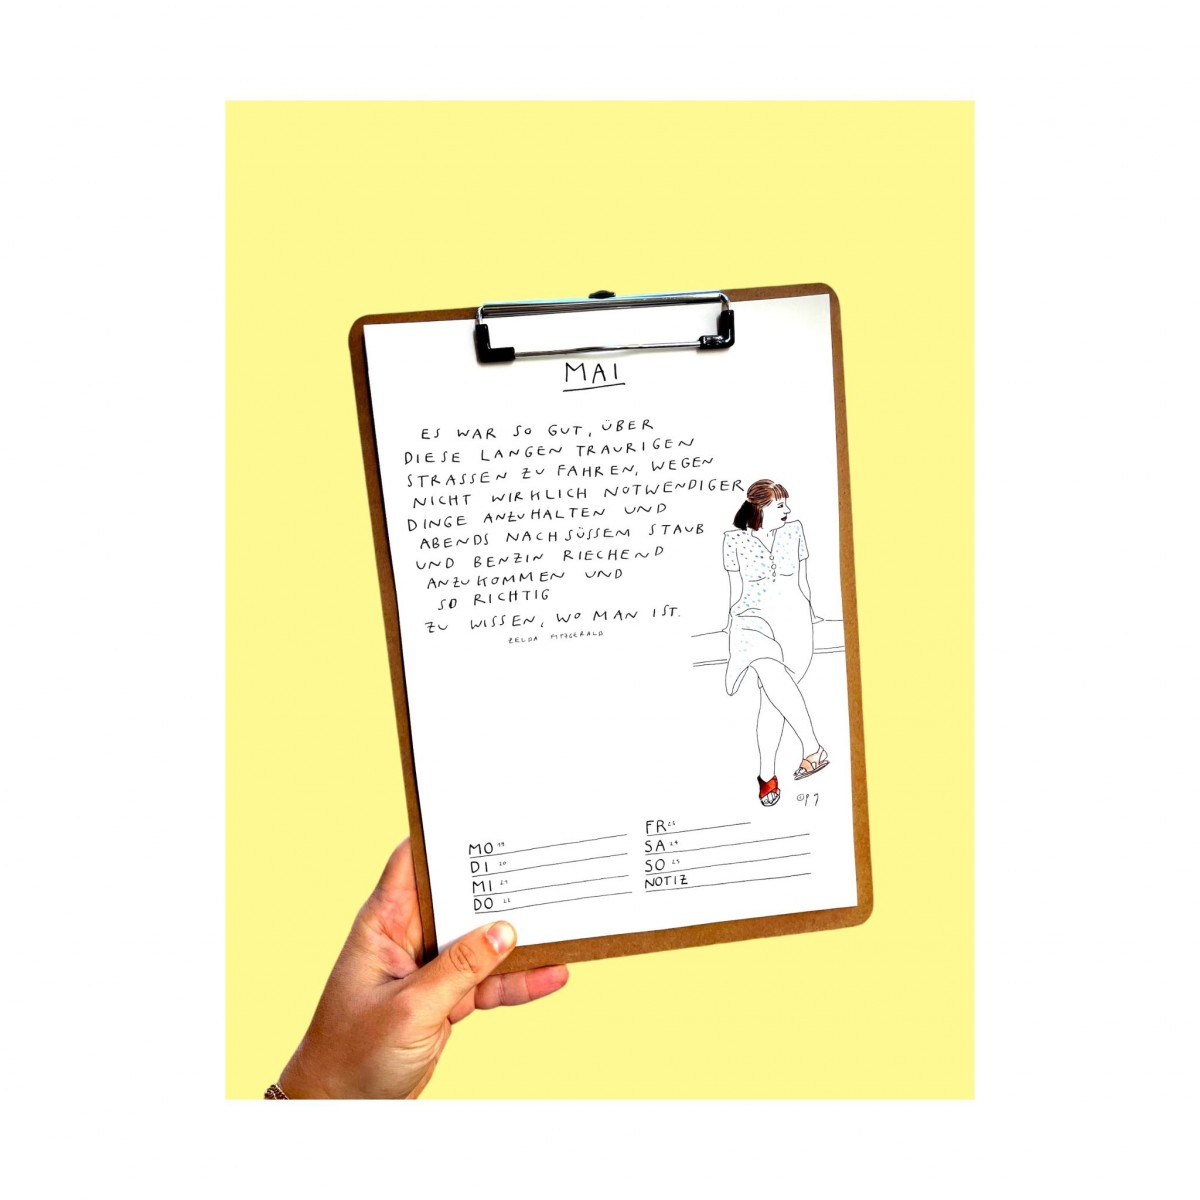 MAI
ES WAR SO GUT, ÜBER
DIESE LANGEN TRAURIGEN
STRASSEN ZU FAHREN, WEGEN
NICHT WIRKLICH NOTWENDIGER
DINGE ANZUHALTEN UND
ABENDS NACH SÜSSEM STAUB
UND BENZIN RIECHEND
ANZUKOMMEN UND
SO RICHTIG
ZU WISSEN, WO MAN IST.
ZELDA FITZGERALD
©pg
MO 19
DI 20
MI 21
DO 22
FR 23
SA 24
SO 25
NOTIZ